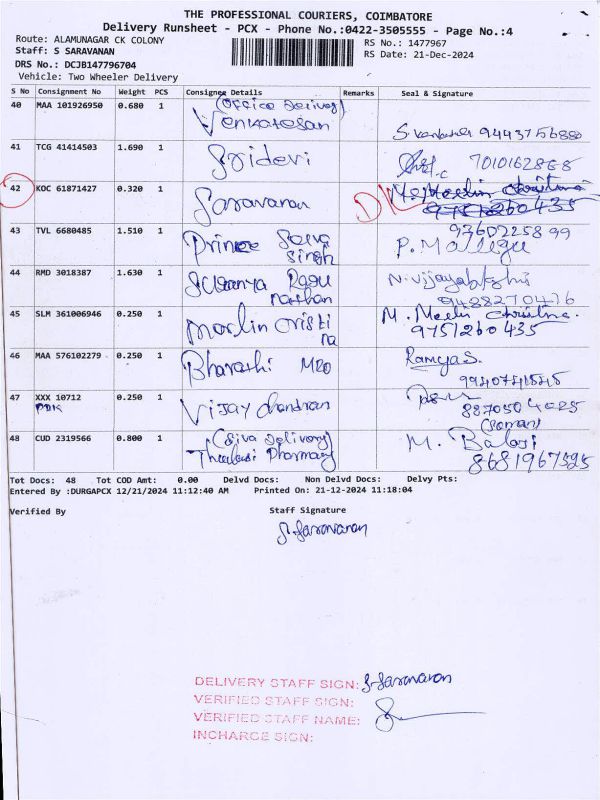 THE PROFESSIONAL COURIERS, COIMBATORE
Delivery Runsheet - PCX - Phone No.:0422-3505555 - Page No.:4
Route: ALAMUNAGAR CK COLONY
RS No.: 1477967
Staff: S SARAVANAN
RS Date: 21-Dec-2024
DRS No.: DCJB147796704
Vehicle: Two Wheeler Delivery
S No Consignment No Weight PCS Consignee Details Remarks Seal & Signature
40 MAA 101926950 0.680 1 (Office Delivery)
Venkatesan 9443756880
41 TCG 41414503 1.690 1 Sridevi 7010162868
42 KOC 61871427 0.320 1 Saravanan
43 TVL 6680485 1.510 1 Prince Selva Singh 9360225899
P. Mallegu
44 RMD 3018387 1.630 1 Sukanya Ragu nathan
9488270476
45 SLM 361006946 0.250 1 Merlin Cristi na M. Merlin Christina.
9751260435
46 MAA 576102279 0.250 1 Bharathi M20 Ramya S.
47 XXX 10712 0.250 1 Vijay Chandran
PDK 8870504025
48 CUD 2319566 0.800 1 (Siva Delivery) M. Balaji
Thulasi Pharmacy 8681967525
Tot Docs: 48 Tot COD Amt: 0.00 Delvd Docs: Non Delvd Docs: Delvy Pts:
Entered By :DURGAPCX 12/21/2024 11:12:40 AM Printed On: 21-12-2024 11:18:04
Verified By Staff Signature
S. Saravanan
DELIVERY STAFF SIGN: S. Saravanan
VERIFIED STAFF SIGN:
VERIFIED STAFF NAME:
INCHARGE SIGN: